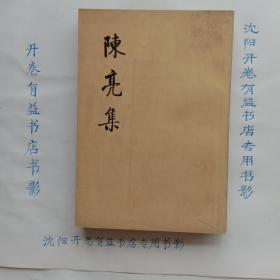 陳亮集
开卷有益书店书影
沈阳开卷有益书店专用书影
沈阳开卷有益书店专用书影